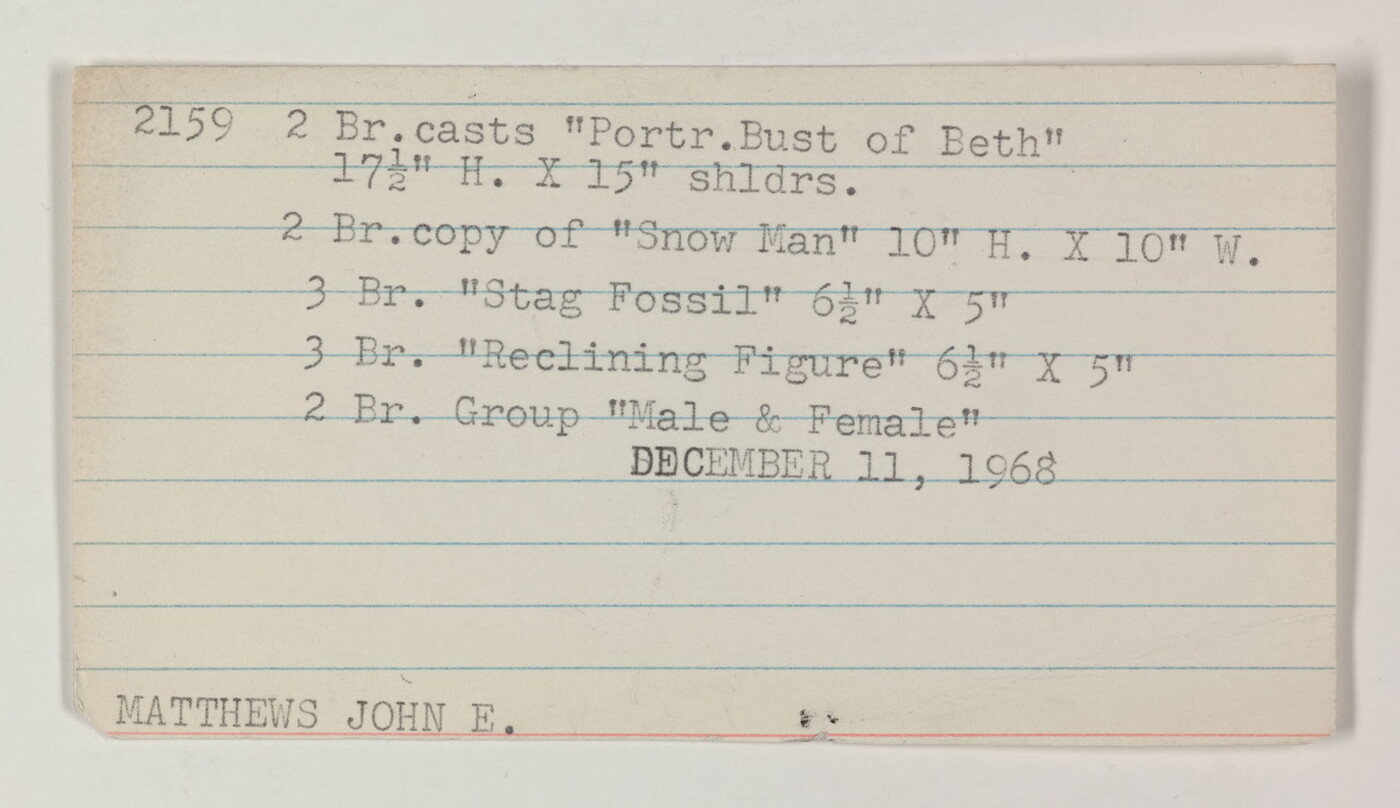 2159 2 Br.casts "Portr.Bust of Beth"
17½" H. X 15" shldrs.
2 Br.copy of "Snow Man" 10" H. X 10" W.
3 Br. "Stag Fossil" 6½" X 5"
3 Br. "Reclining Figure" 6½" X 5"
2 Br. Group "Male & Female"
DECEMBER 11, 1968
MATTHEWS JOHN E.